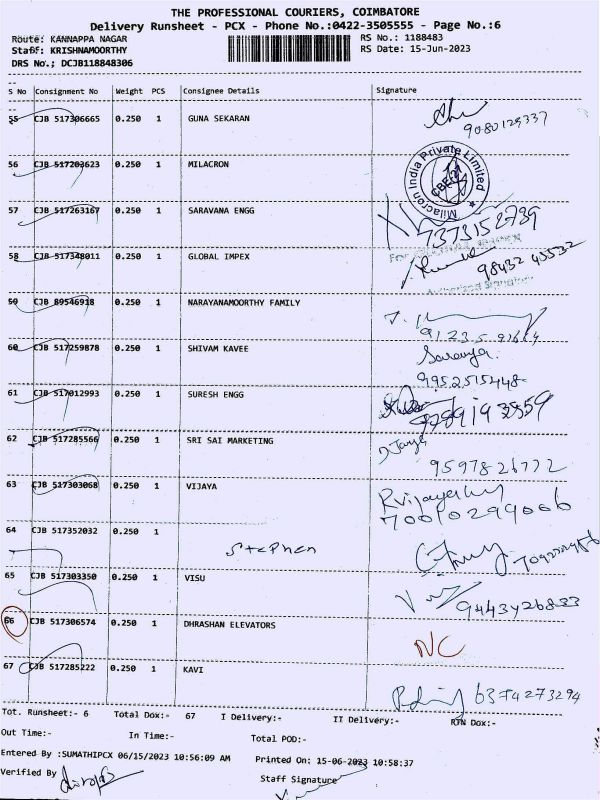 THE PROFESSIONAL COURIERS, COIMBATORE
Delivery Runsheet - PCX - Phone No.:0422-3505555 - Page No.:6
Route: KANNAPPA NAGAR RS No.: 1188483
Staff: KRISHNAMOORTHY RS Date: 15-Jun-2023
DRS No.; DCJB118848306
S No Consignment No Weight PCS Consignee Details Signature
55 CJB 517306665 0.250 1 GUNA SEKARAN
9080129337
56 CJB 517203623 0.250 1 MILACRON
Milacron India Private Limited
CBE-21
57 CJB 517263167 0.250 1 SARAVANA ENGG
7373152739
58 CJB 517348011 0.250 1 GLOBAL IMPEX
98432 45532
Authorized Signatory
59 CJB 89546918 0.250 1 NARAYANAMOORTHY FAMILY
60 CJB 517259878 0.250 1 SHIVAM KAVEE Saranya
9952515448
61 CJB 517012993 0.250 1 SURESH ENGG
9789193559
62 CJB 517285566 0.250 1 SRI SAI MARKETING D Jaya
9597826772
63 CJB 517303068 0.250 1 VIJAYA
70010299006
64 CJB 517352032 0.250 1
Stephen
65 CJB 517303350 0.250 1 VISU
66 CJB 517306574 0.250 1 DHRASHAN ELEVATORS NC
67 CJB 517285222 0.250 1 KAVI
6374273294
Tot. Runsheet:- 6 Total Dox:- 67 I Delivery:- II Delivery:- RTN Dox:-
Out Time:- In Time:- Total POD:-
Entered By :SUMATHIPCX 06/15/2023 10:56:09 AM Printed On: 15-06-2023 10:58:37
Verified By Staff Signature